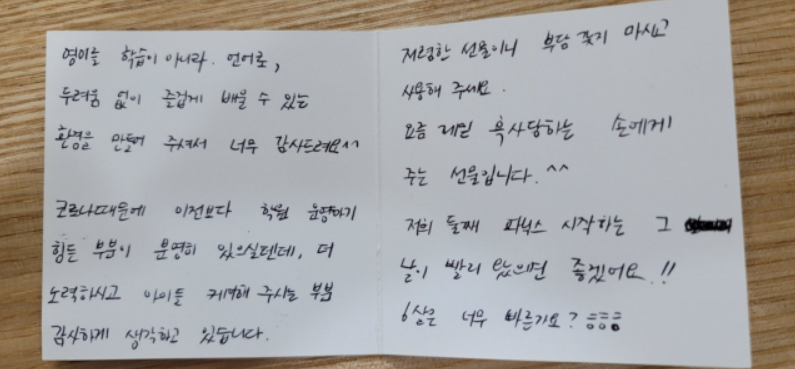 영어를 학습이 아니라. 언어로,
두려움 없이 즐겁게 배울 수 있는
환경을 만들어 주셔서 너무 감사드려요^^
코로나때문에 이전보다 학원 운영하기
힘든 부분이 분명히 있으실텐데, 더
노력하시고 아이들 케어해 주시는 부분
감사하게 생각하고 있습니다.
저렴한 선물이니 부담 갖지 마시고
사용해 주세요.
요즘 제일 혹사당하는 손에게
주는 선물입니다.^^
저희 둘째 파닉스 시작하는 그
날이 빨리 왔으면 좋겠어요!!
6살은 너무 빠른가요? ㅎㅎㅎ